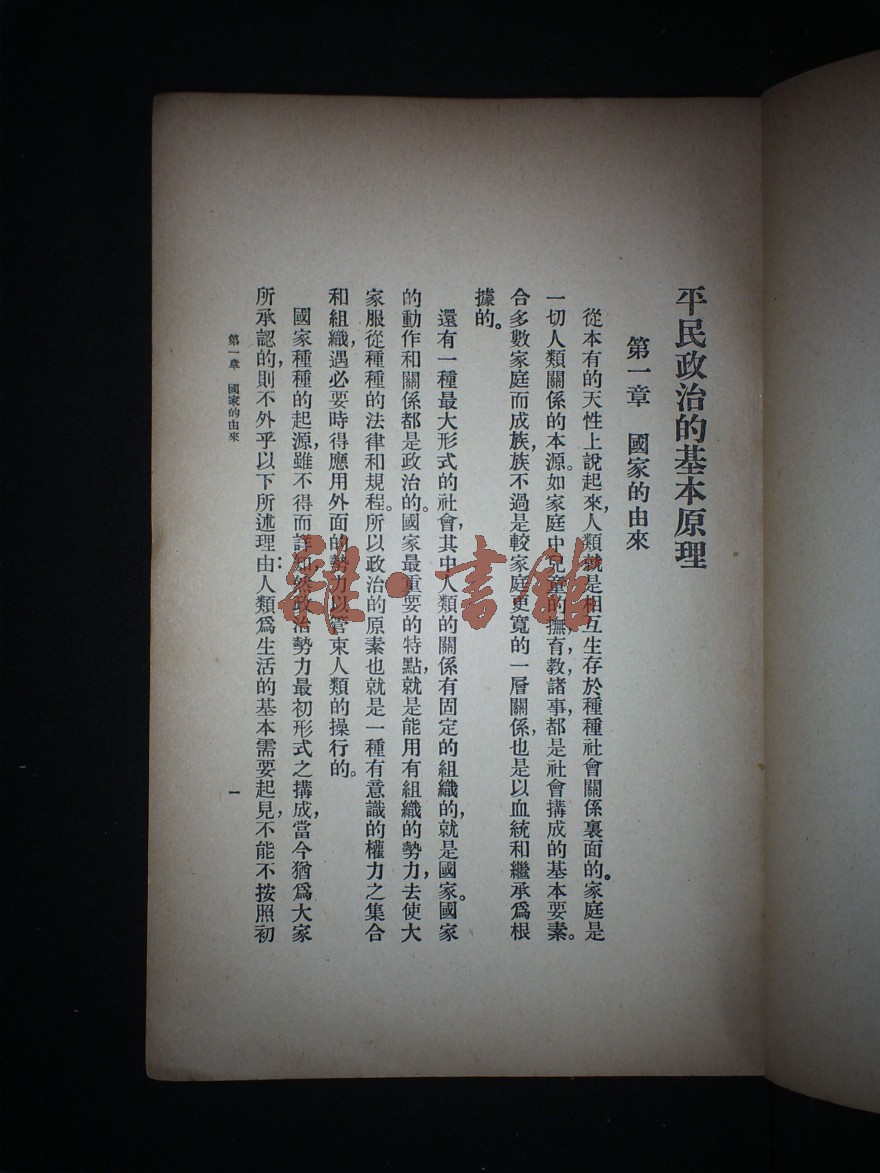 平民政治的基本原理
第一章 國家的由來
從本有的天性上說起來，人類就是相互生存於種種社會關係裏面的。家庭是
一切人類關係的本源。如家庭中兒童的，撫育，教諸事，都是社會搆成的基本要素。
合多數家庭而成族，族不過是較家庭更寬的一層關係，也是以血統和繼承爲根
據的。
還有一種最大形式的社會，其中人類的關係有固定的組織的，就是國家。國家
的動作和關係都是政治的。國家最重要的特點，就是能用有組織的勢力，去使大
家服從種種的法律和規程。所以政治的原素也就是一種有意識的權力之集合
和組織，遇必要時得應用外面的勢力以管束人類的操行的。
國家種種的起源，雖不得而詳知，然政治勢力最初形式之搆成，當今猶爲大家
所承認的，則不外乎以下所述理由：人類爲生活的基本需要起見，不能不按照初
第一章 國家的由來
一
雜·書館